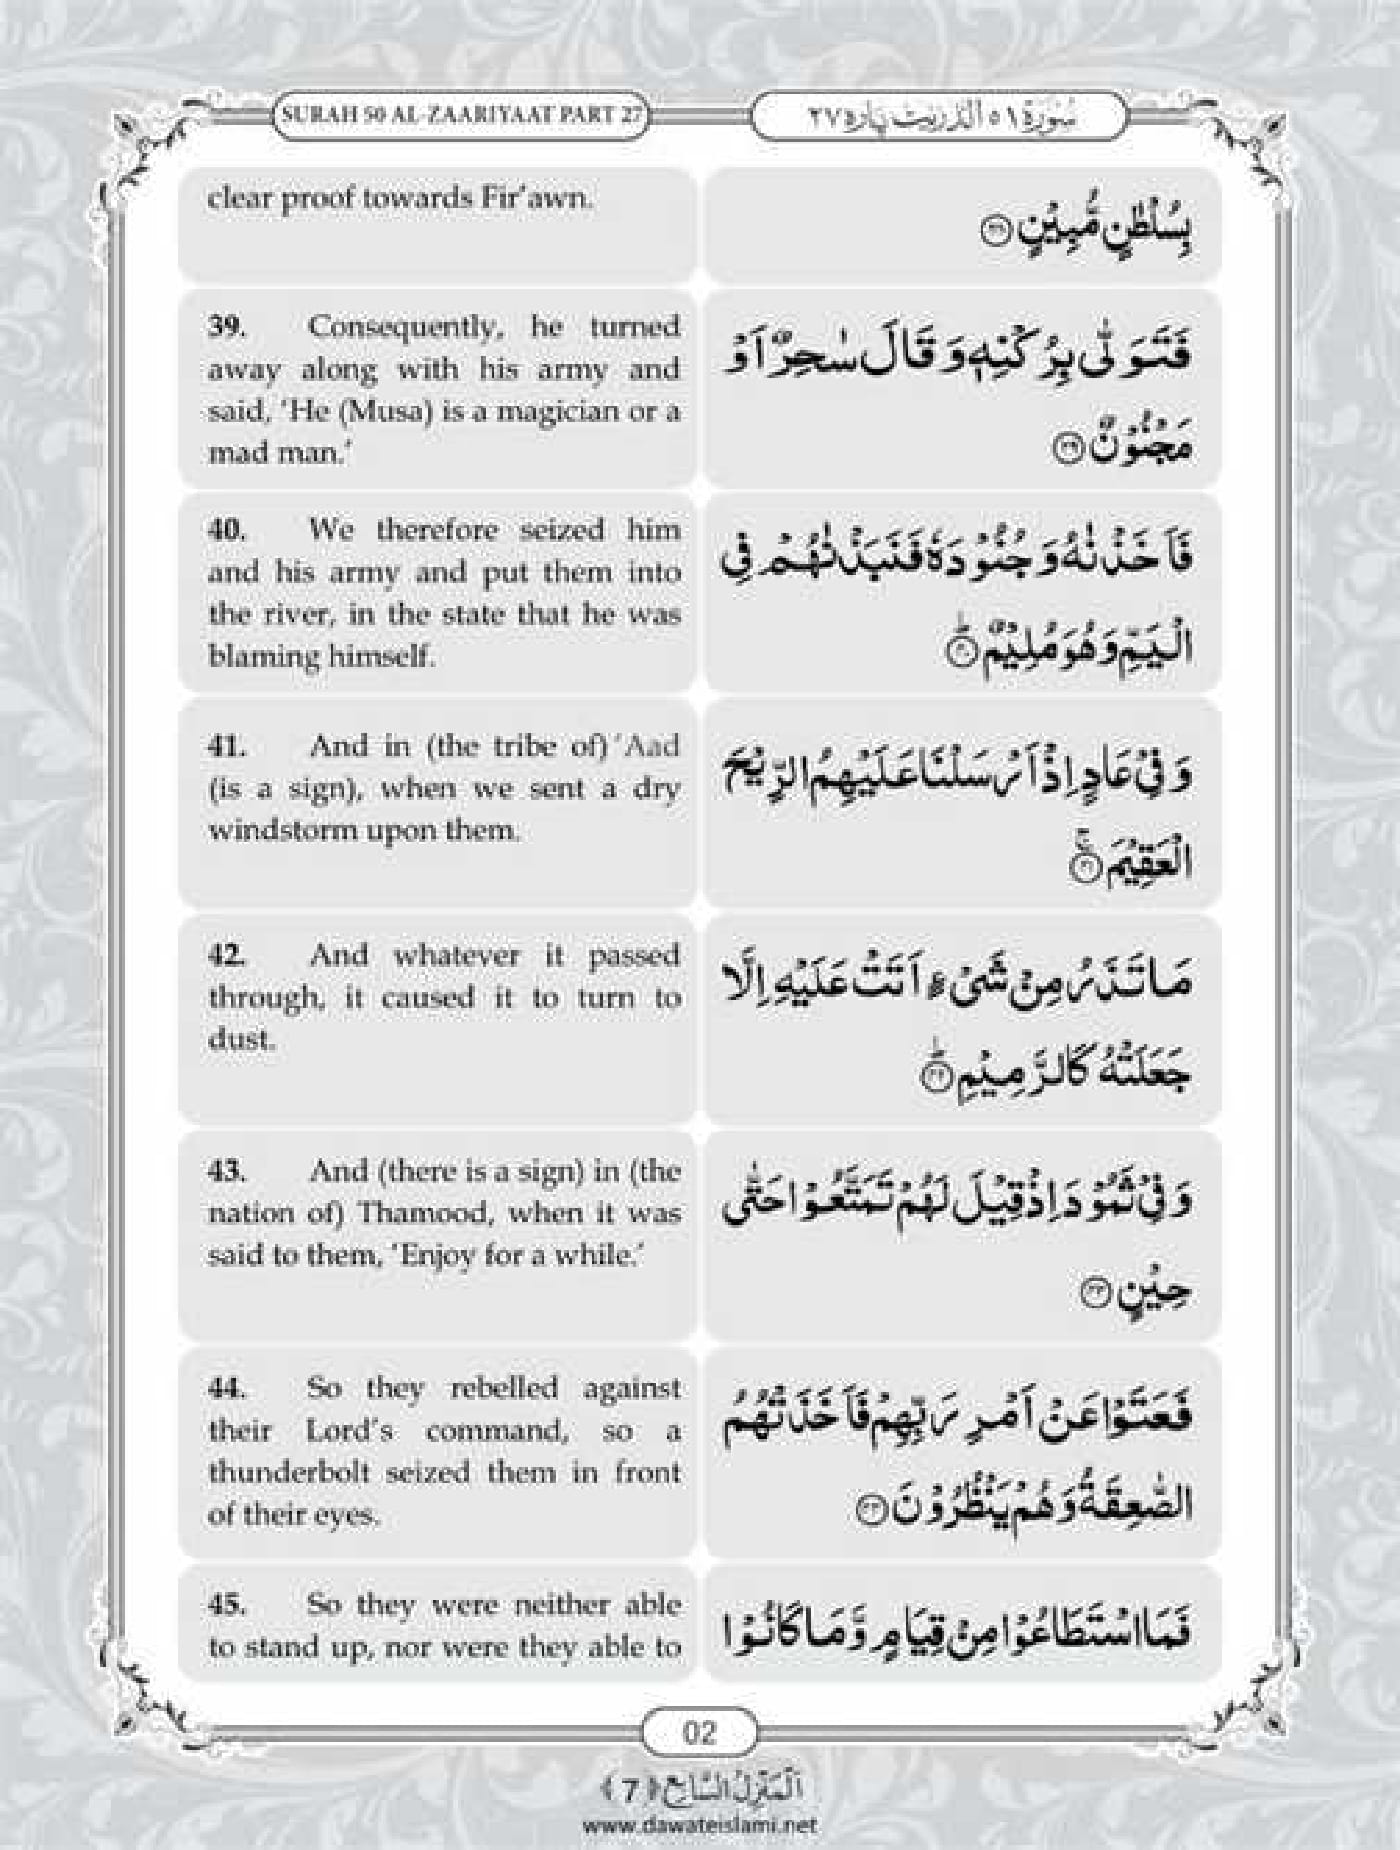 SURAH 50 AL-ZAARIYAAT PART 27
سُوۡرَۃ ٥١ الذّٰرِیٰت پارہ ٢٧
clear proof towards Fir’awn.
بِسُلْطٰنٍ مُّبِیْنٍ ﴿۳۸﴾
39. Consequently, he turned
away along with his army and
said, ‘He (Musa) is a magician or a
mad man.’
فَتَوَلّٰى بِرُكْنِهٖ وَ قَالَ سٰحِرٌ اَوْ
مَجْنُوْنٌ ﴿۳۹﴾
40. We therefore seized him
and his army and put them into
the river, in the state that he was
blaming himself.
فَاَخَذْنٰهُ وَ جُنُوْدَهٗ فَنَبَذْنٰهُمْ فِی
الْیَمِّ وَ هُوَ مُلِیْمٌ ﴿۴۰﴾ؕ
41. And in (the tribe of) ‘Aad
(is a sign), when we sent a dry
windstorm upon them.
وَ فِیْ عَادٍ اِذْ اَرْسَلْنَا عَلَیْهِمُ الرِّیْحَ
الْعَقِیْمَ ﴿۴۱﴾ۚ
42. And whatever it passed
through, it caused it to turn to
dust.
مَا تَذَرُ مِنْ شَیْءٍ اَتَتْ عَلَیْهِ اِلَّا
جَعَلَتْهُ كَالرَّمِیْمِ ﴿۴۲﴾ؕ
43. And (there is a sign) in (the
nation of) Thamood, when it was
said to them, ‘Enjoy for a while.’
وَ فِیْ ثَمُوْدَ اِذْ قِیْلَ لَهُمْ تَمَتَّعُوْا حَتّٰى
حِیْنٍ ﴿۴۳﴾
44. So they rebelled against
their Lord’s command, so a
thunderbolt seized them in front
of their eyes.
فَعَتَوْا عَنْ اَمْرِ رَبِّهِمْ فَاَخَذَتْهُمُ
الصّٰعِقَةُ وَ هُمْ یَنْظُرُوْنَ ﴿۴۴﴾
45. So they were neither able
to stand up, nor were they able to
فَمَا اسْتَطَاعُوْا مِنْ قِیَامٍ وَّ مَا كَانُوْا
02
اَلْمَنْزِلُ السَّابِع ﴿7﴾
www.dawateislami.net